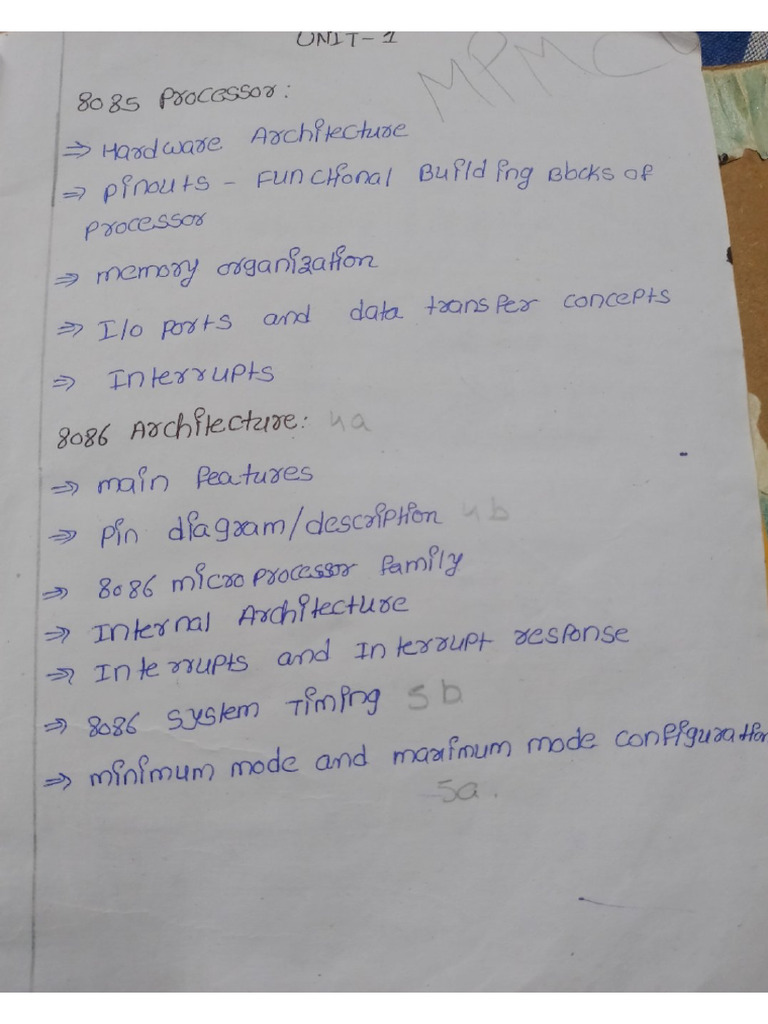 UNIT-1
MPMC
8085 Processor:
⇒ Hardware Architecture
⇒ pinouts - Functional Building Blocks of
processor
⇒ memory organization
⇒ I/o ports and data transfer concepts
⇒ Interrupts
8086 Architecture: 4a
⇒ main features
⇒ pin diagram/description 4b
⇒ 8086 microprocessor family
⇒ Internal Architecture
⇒ Interrupts and Interrupt response
⇒ 8086 System Timing 5b
⇒ minimum mode and maximum mode configuration
5a.